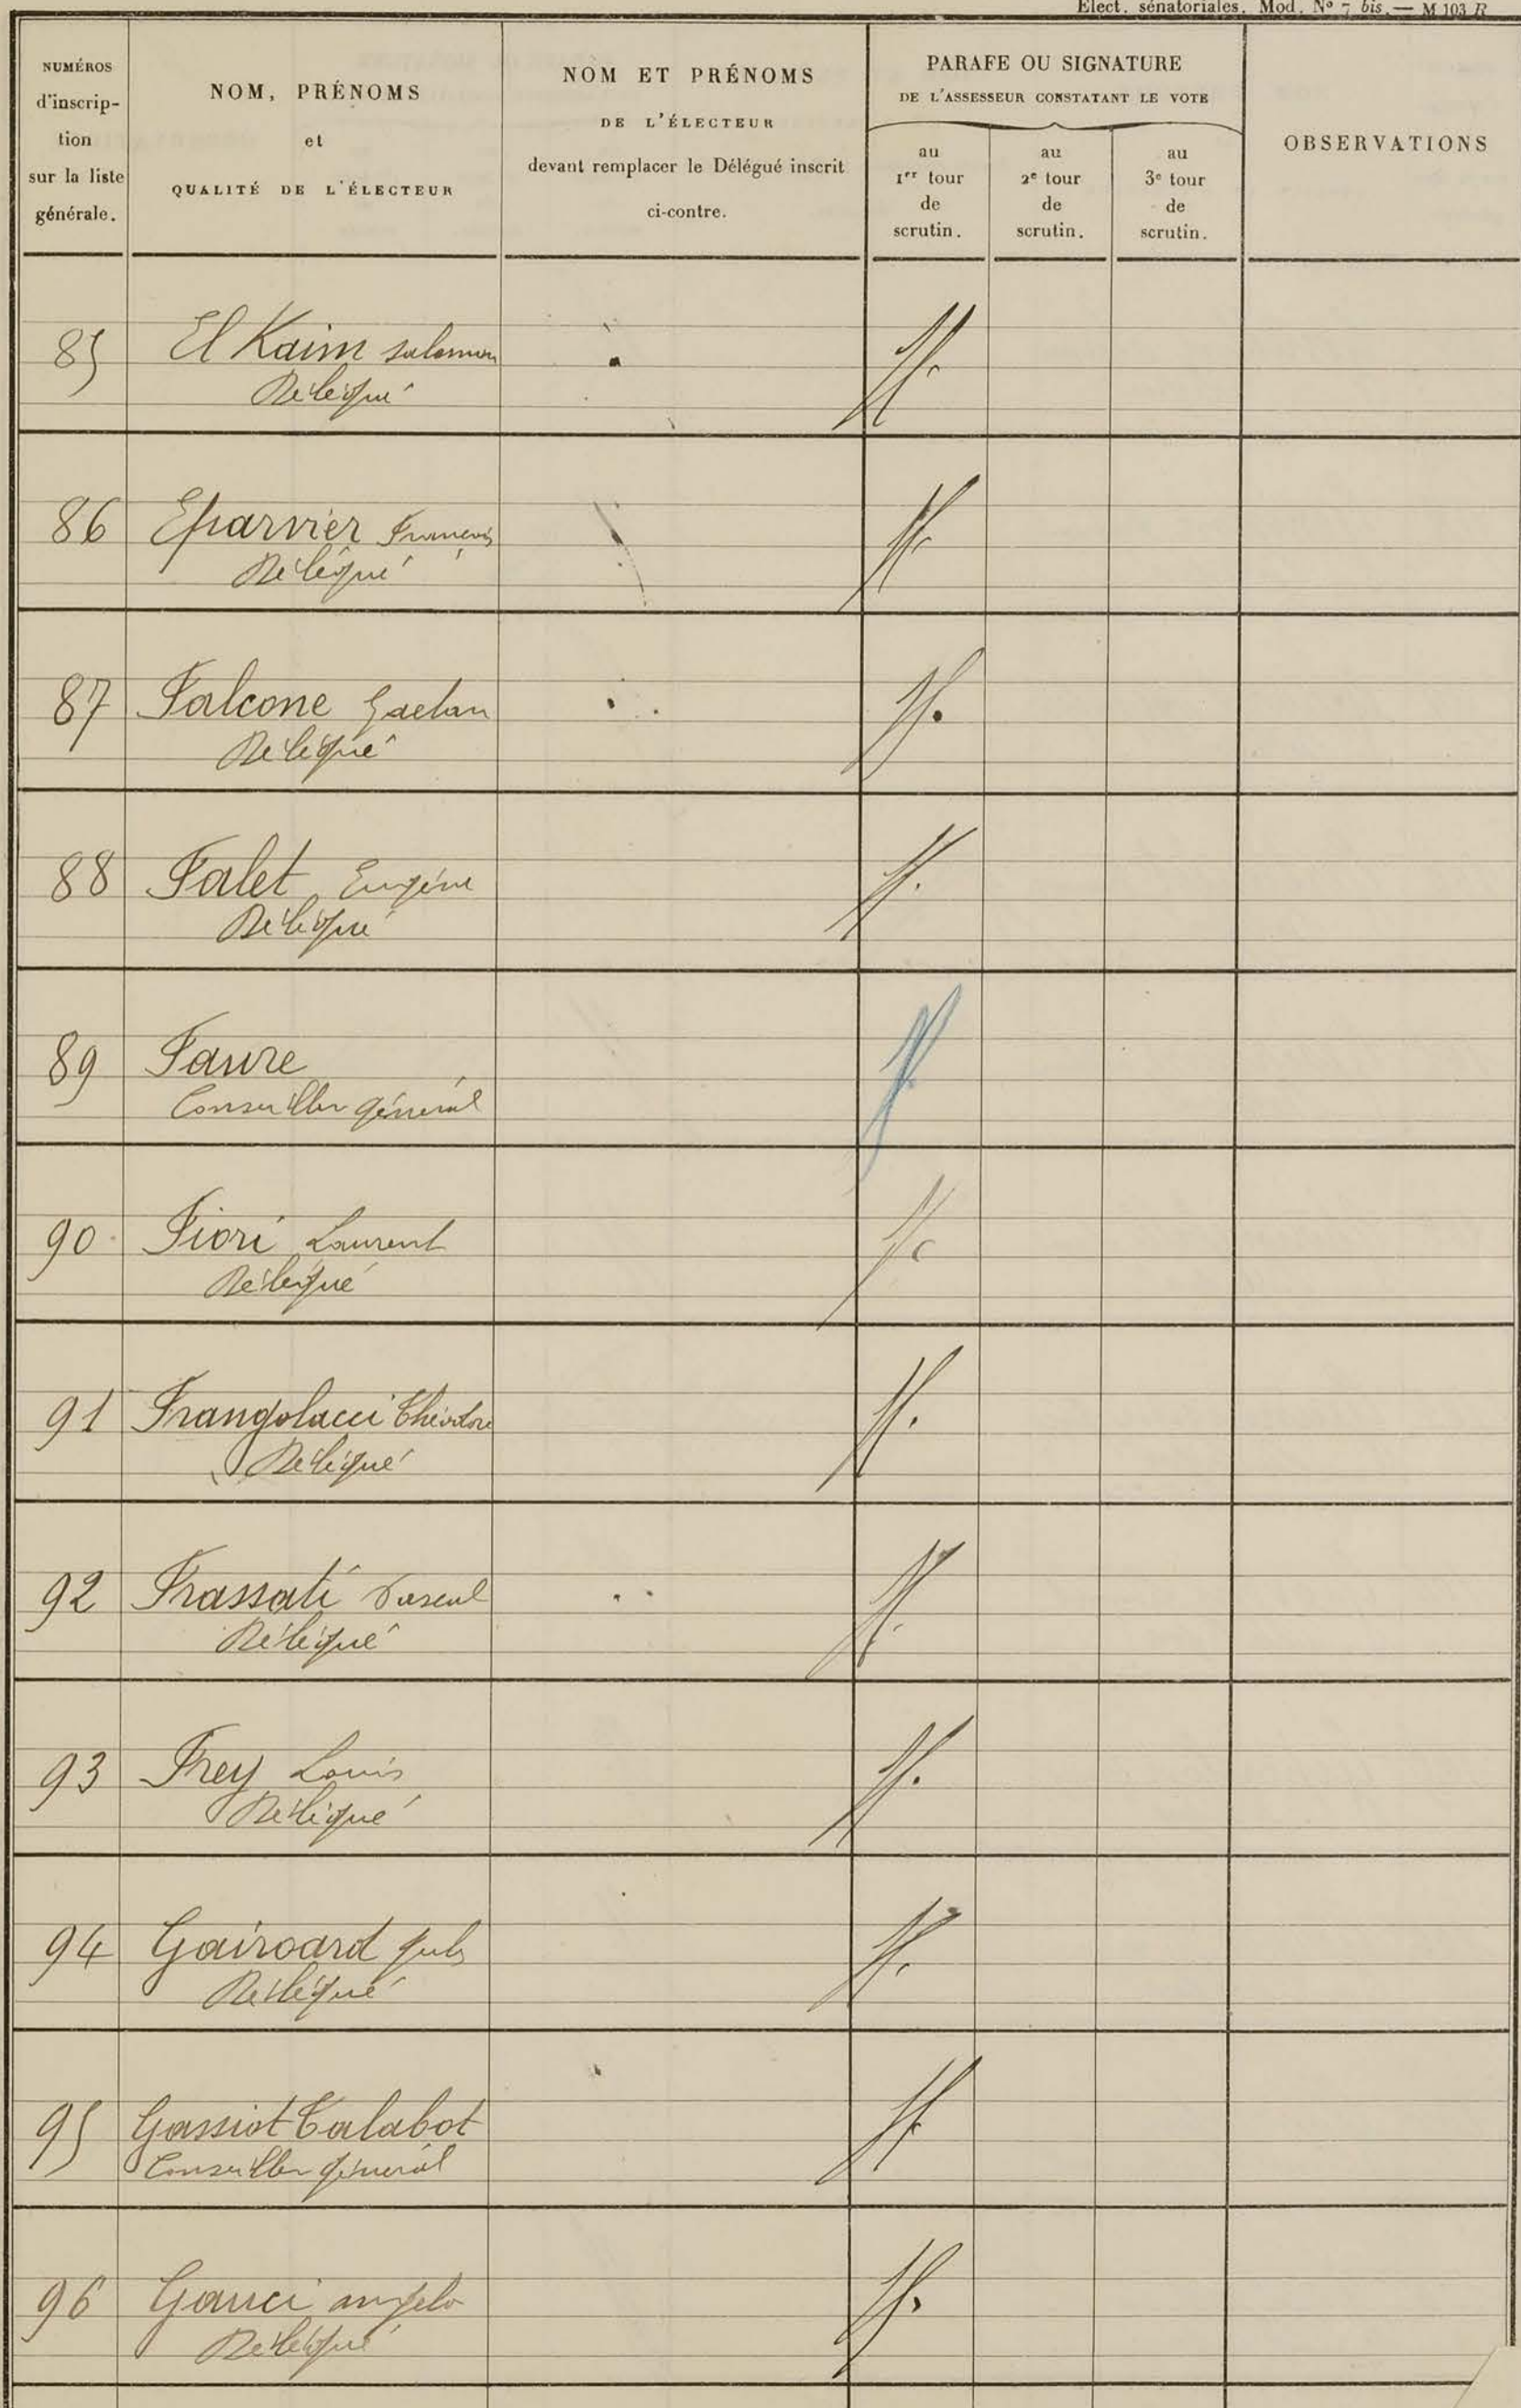 Elect. sénatoriales. Mod. N° 7 bis. — M 103 R
NUMÉROS
d'inscrip-
tion
sur la liste
générale.
NOM, PRÉNOMS
et
QUALITÉ DE L'ÉLECTEUR
NOM ET PRÉNOMS
DE L'ÉLECTEUR
devant remplacer le Délégué inscrit
ci-contre.
PARAFE OU SIGNATURE
DE L'ASSESSEUR CONSTATANT LE VOTE
au
1er tour
de
scrutin.
au
2e tour
de
scrutin.
au
3e tour
de
scrutin.
OBSERVATIONS
85 El Kaim Salomon
Délégué
86 Eparvier François
Délégué
87 Falcone Gaetan
Délégué
88 Falet Eugène
Délégué
89 Faure
Conseiller général
90 Fiori Laurent
Délégué
91 Frangolacci Théodore
Délégué
92 Frassati
Délégué
93 Frey Louis
Délégué
94 Gairoard Jules
Délégué
95 Gassiot Talabot
Conseiller général
96 Gauci angelo
Délégué